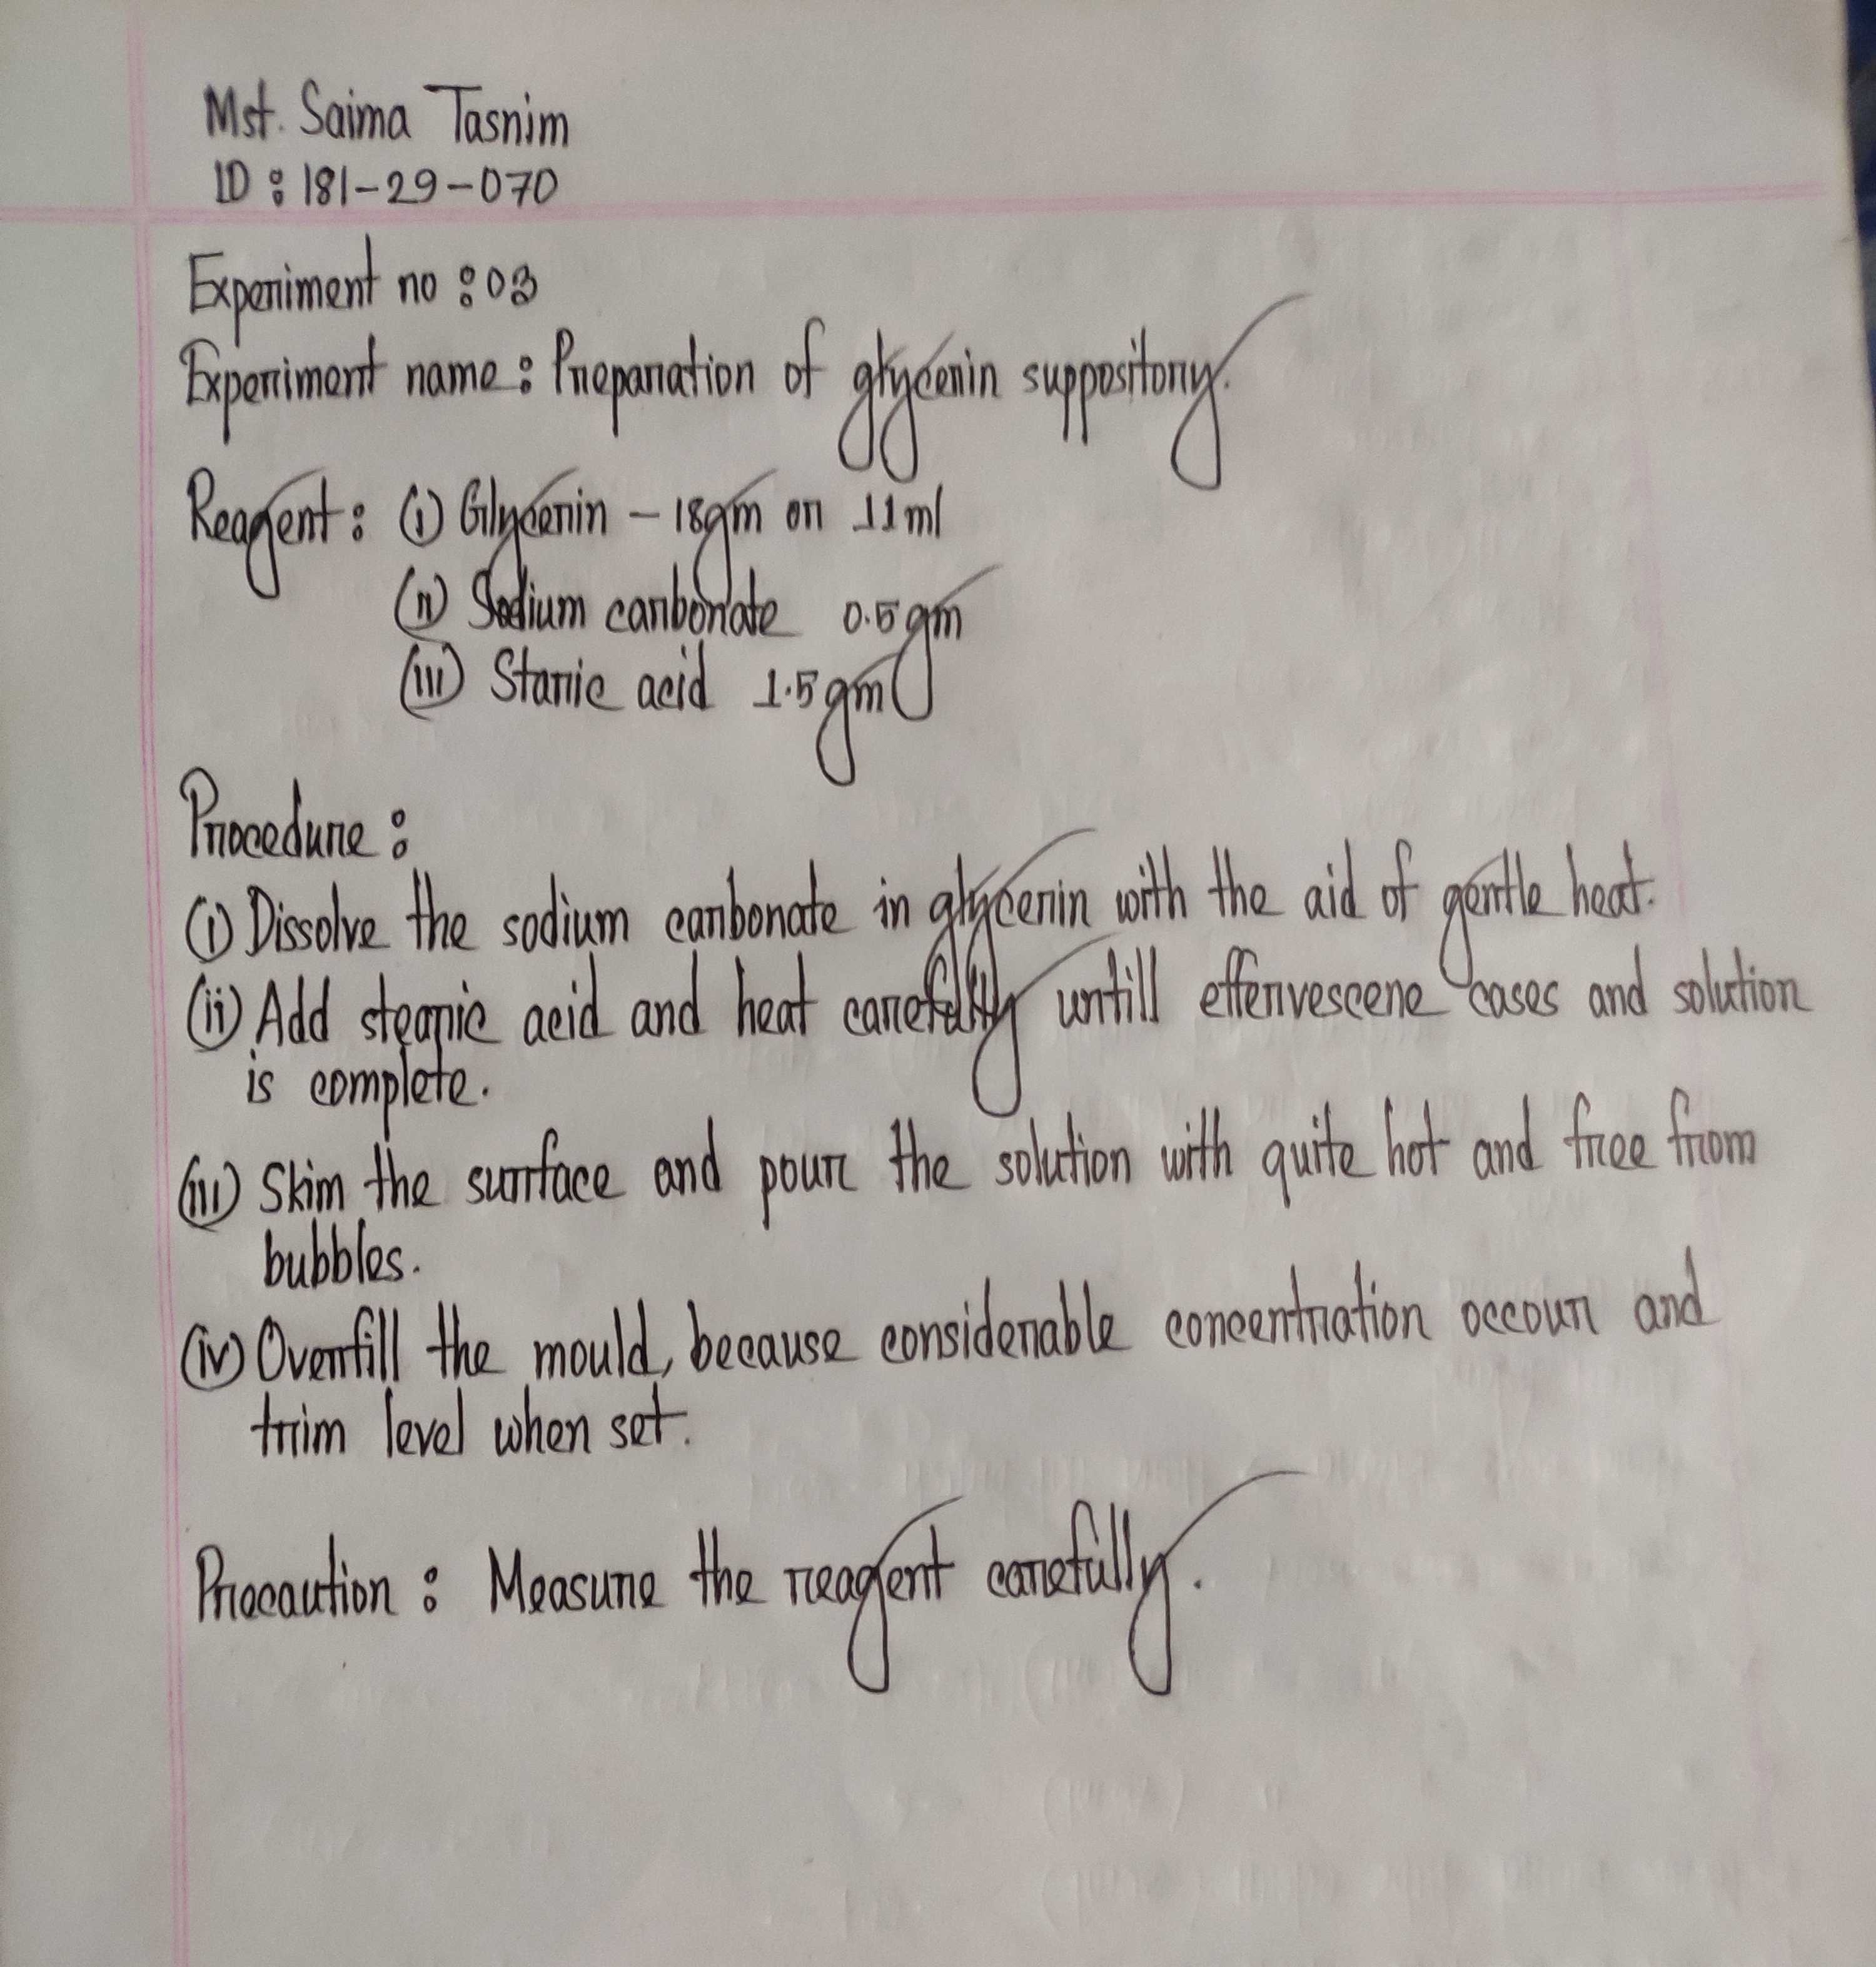 Mst. Saima Tasnim
ID : 181-29-070
Experiment no : 03
Experiment name : Preparation of glycerin suppository.
Reagent : (i) Glycerin - 18gm or 11ml
(ii) Sodium carbonate 0.5gm
(iii) Staric acid 1.5gm
Procedure :
(i) Dissolve the sodium carbonate in glycerin with the aid of gentle heat.
(ii) Add stearic acid and heat carefully untill effervescene cases and solution
is complete.
(iii) Skim the surface and pour the solution with quite hot and free from
bubbles.
(iv) Overfill the mould, because considerable concentration occour and
trim level when set.
Precaution : Measure the reagent carefully.